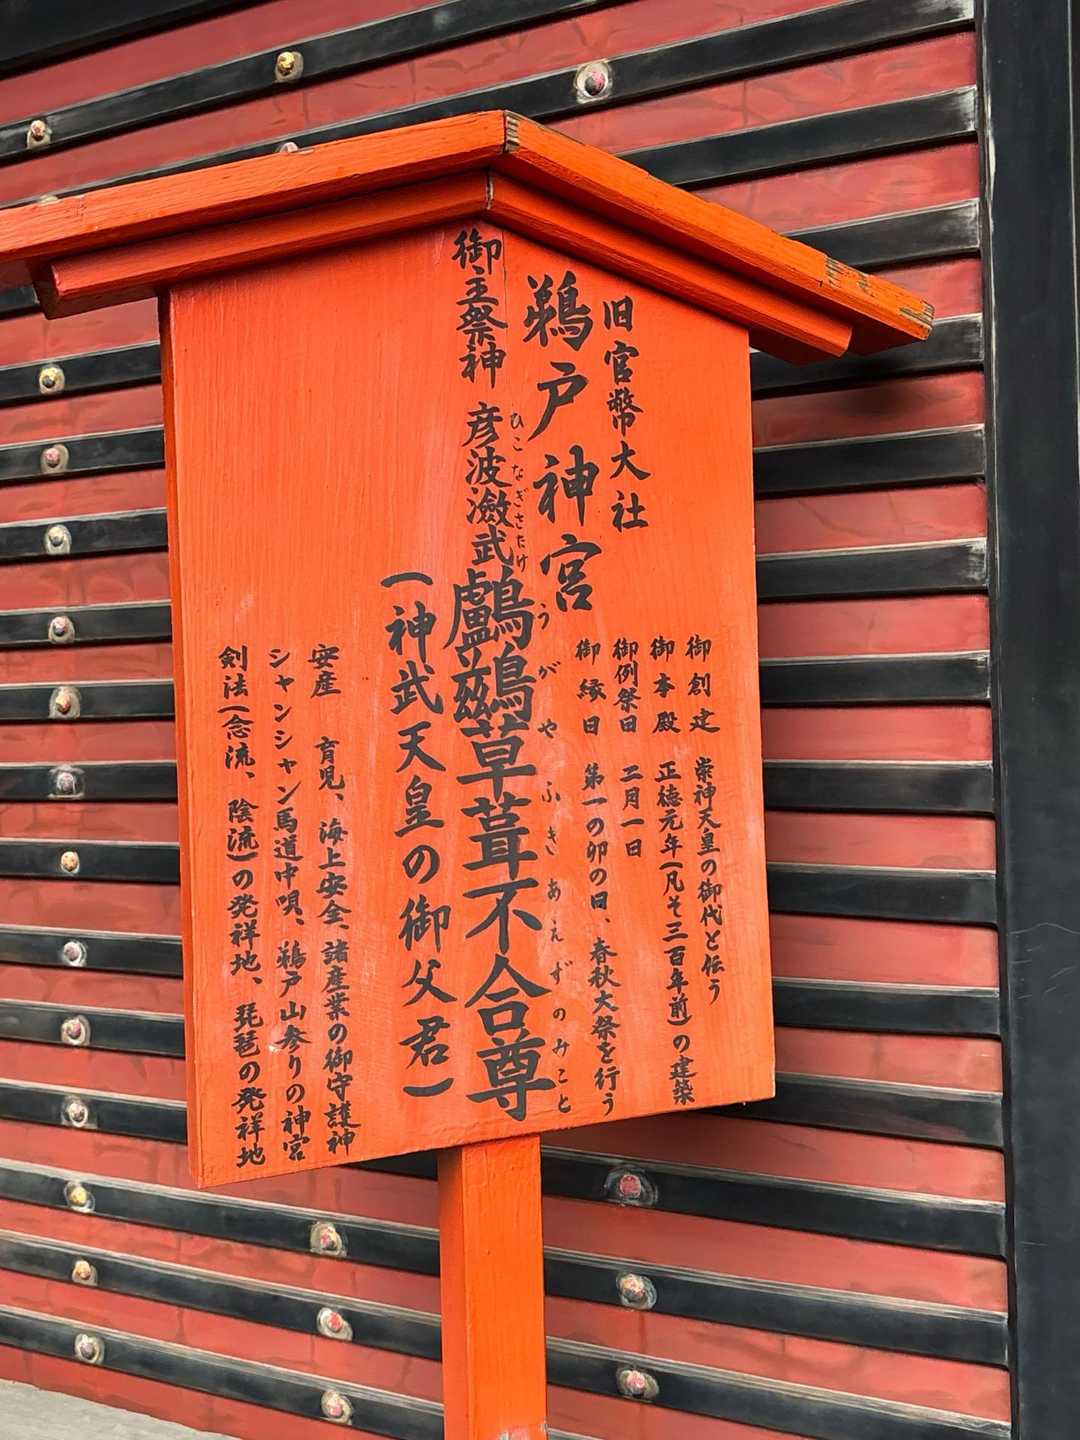 旧官幣大社
鵜戸神宮
御創建 崇神天皇の御代と伝う
御本殿 正徳元年(凡そ三百年前)の建築
御例祭日 二月一日
御縁日 第一の卯の日、春秋大祭を行う
御主祭神 彦波瀲武鸕鶿草葺不合尊
ひこなぎさたけうがやふきあえずのみこと
(神武天皇の御父君)
安産 育児、海上安全、諸産業の御守護神
シャンシャン馬道中唄、鵜戸山参りの神宮
剣法(念流、陰流)の発祥地、琵琶の発祥地